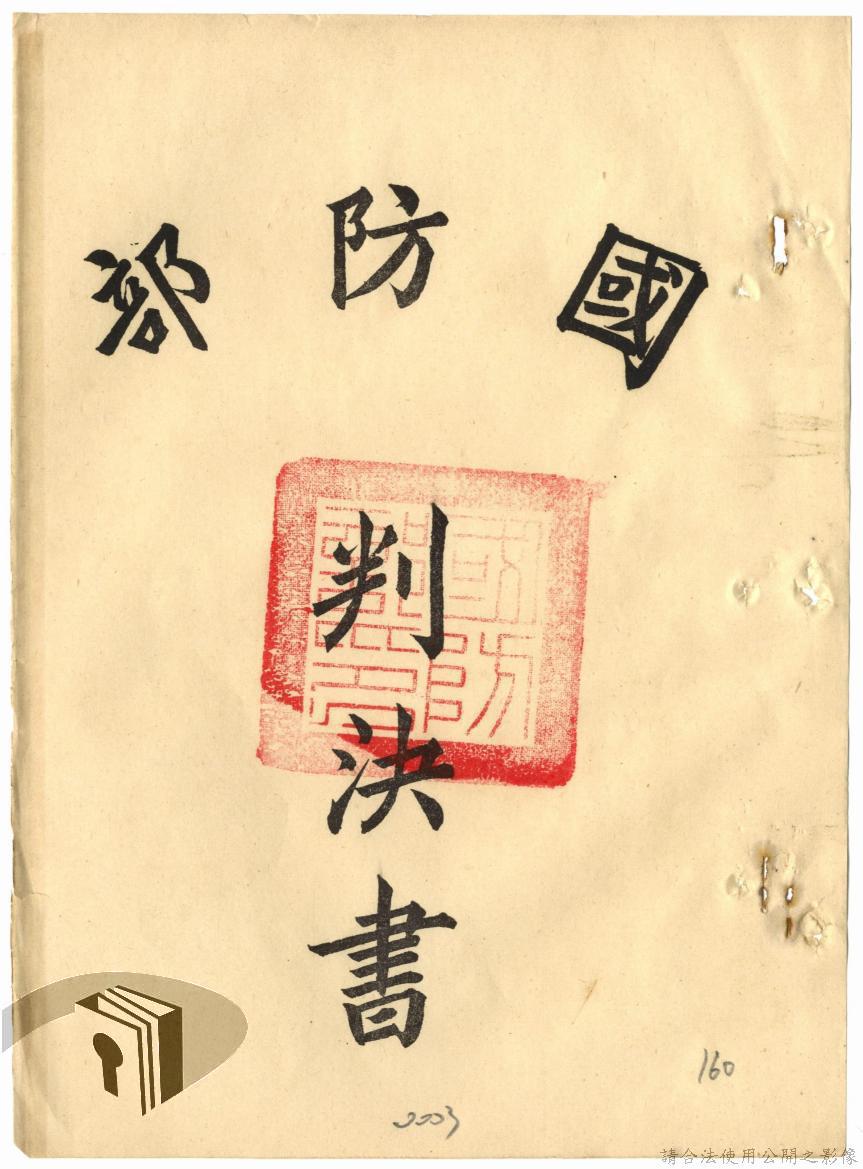 國防部
判決書
國防部印
160
0003
請合法使用公開之影像